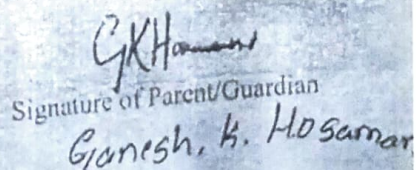 GKH
Signature of Parent/Guardian
Ganesh. K. Hosamar